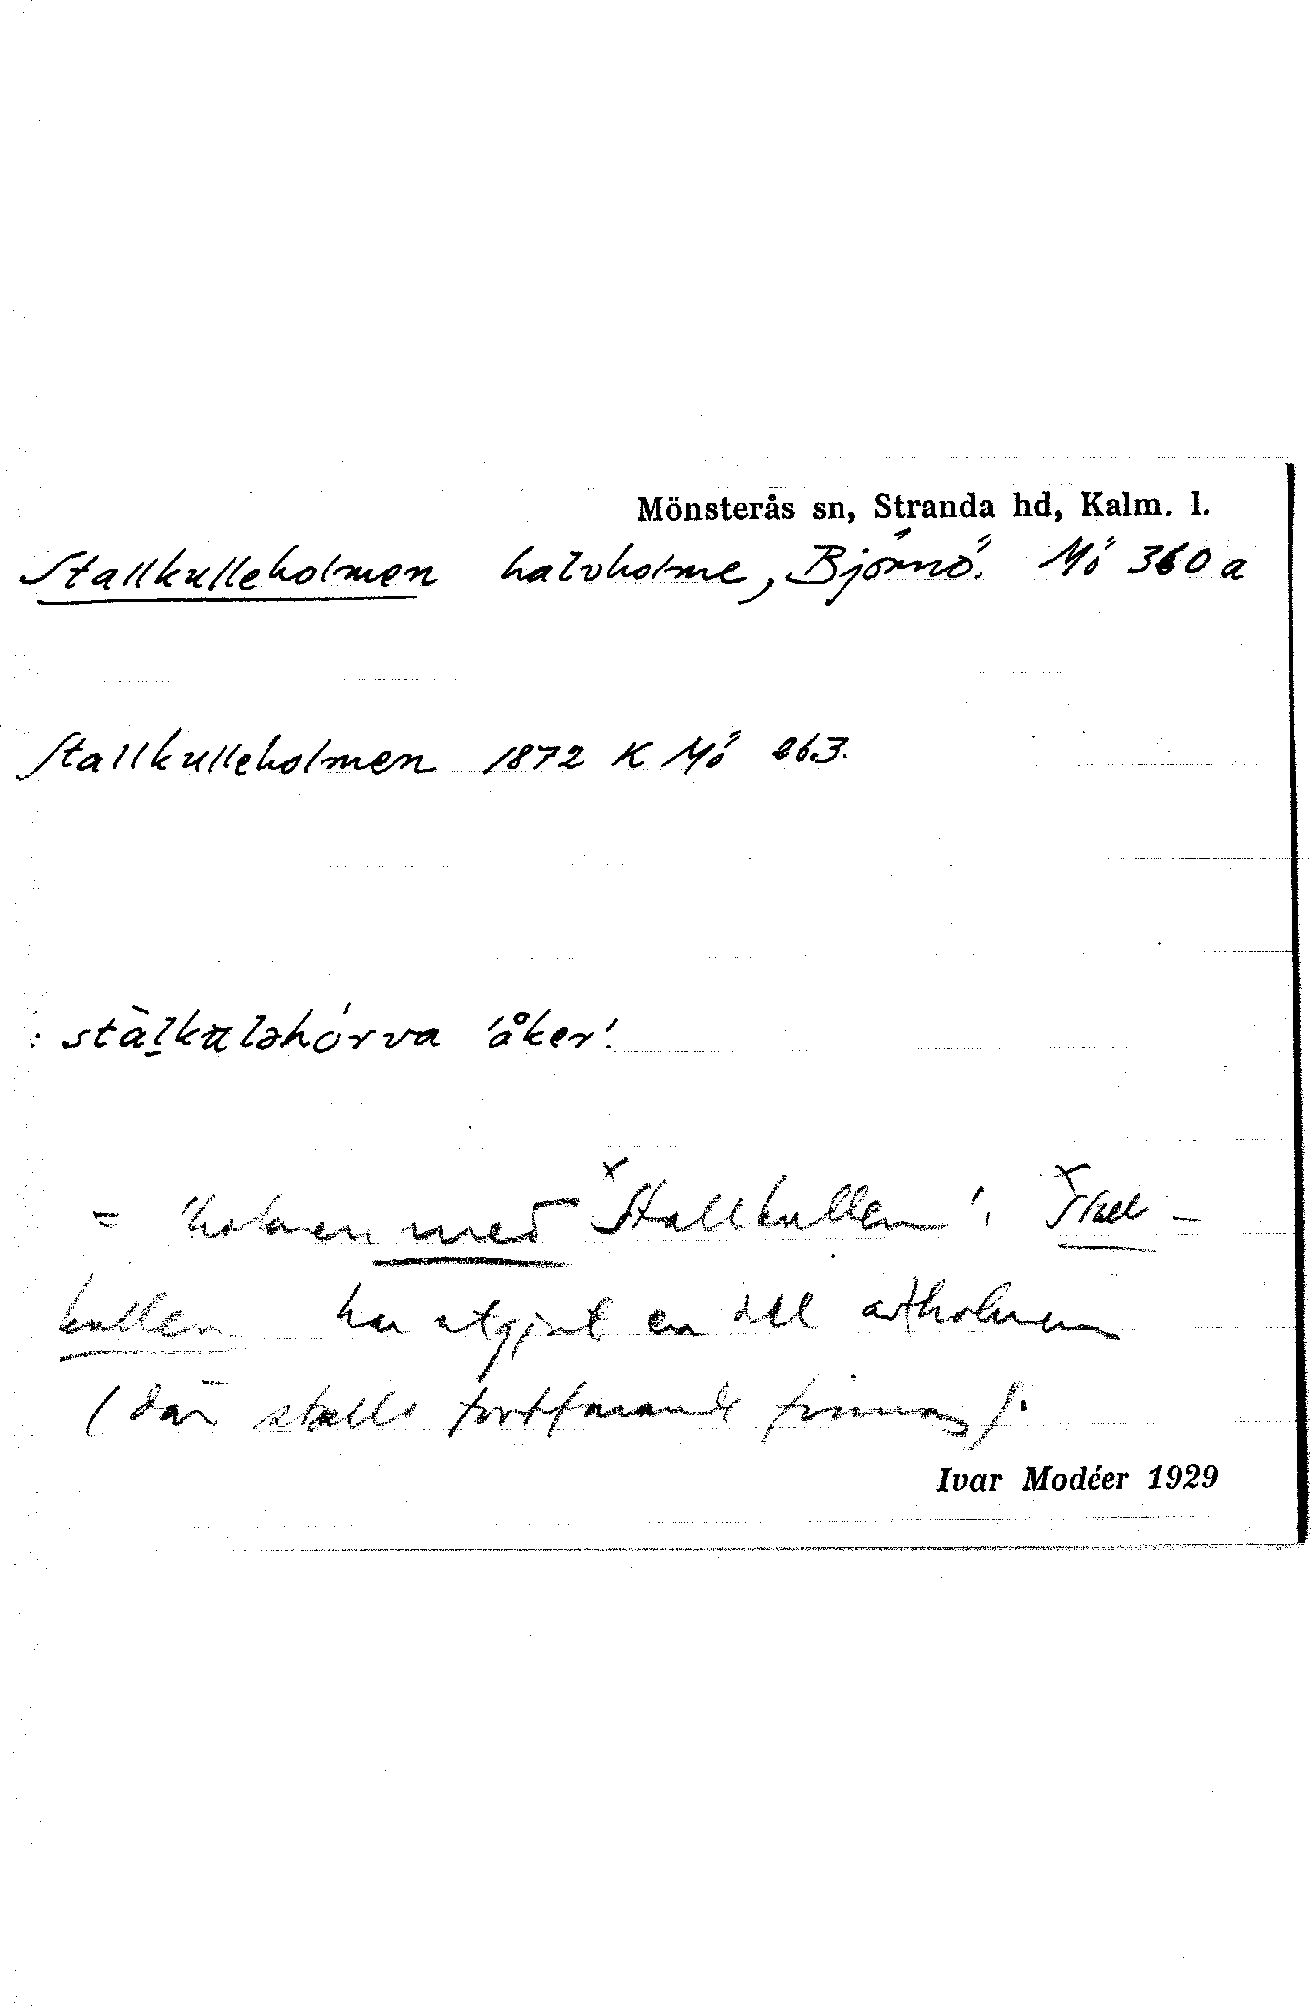 Mönsterås sn, Stranda hd, Kalm. l.
Stallkulleholmen halvholme, Björnö. Mö 360 a
Stallkulleholmen 1872 K Mö 263.
: stàl̠kuləhórva 'åker'.
= 'holmen med ˣStallkullen'. ˣStall-
kullen har utgjort en del av holmen
(där stalls fortfarande finnas).
Ivar Modéer 1929